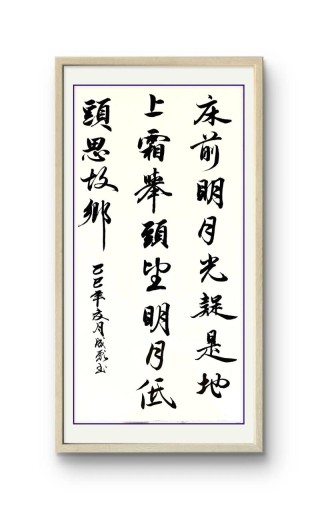 床前明月光疑是地
上霜舉頭望明月低
頭思故鄉
乙巳年夏月